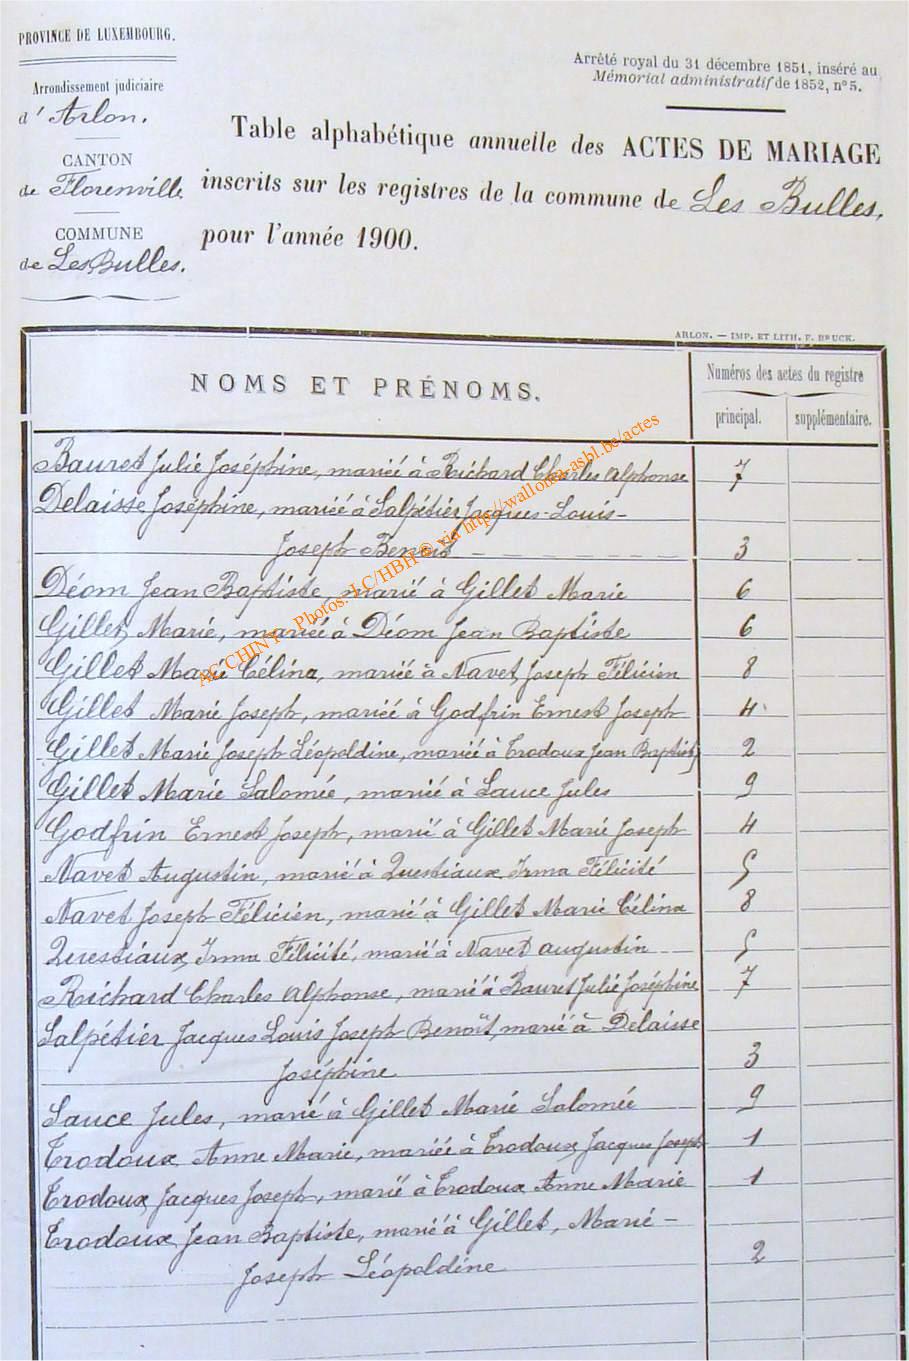 PROVINCE DE LUXEMBOURG.
Arrondissement judiciaire
d'Arlon.
CANTON
de Florenville
COMMUNE
de Les Bulles.
Arrêté royal du 31 décembre 1851, inséré au
Mémorial administratif de 1852, n° 5.
Table alphabétique annuelle des ACTES DE MARIAGE
inscrits sur les registres de la commune de Les Bulles,
pour l'année 1900.
ARLON. — IMP. ET LITH. F. BRUCK.
NOMS ET PRÉNOMS.
Numéros des actes du registre
principal. supplémentaire.
Bauret Julie Joséphine, mariée à Richard Charles Alphonse 7
Delaisse Joséphine, mariée à Salpétier Jacques-Louis-
Joseph Benoit 3
Déom Jean Baptiste, marié à Gillet Marie 6
Gillet, Marie, mariée à Déom Jean Baptiste 6
Gillet Marie Célina, mariée à Navet Joseph Félicien 8
Gillet Marie Joseph, mariée à Godfrin Ernest Joseph 4
Gillet Marie Joseph Léopoldine, mariée à Trodoux Jean Baptiste 2
Gillet Marie Salomée, mariée à Sauce Jules 9
Godfrin Ernest Joseph, marié à Gillet Marie Joseph 4
Navet Augustin, marié à Questiaux Irma Félicité 5
Navet Joseph Félicien, marié à Gillet Marie Célina 8
Questiaux Irma Félicité, marié à Navet Augustin 5
Richard Charles Alphonse, marié à Bauret Julie Joséphine 7
Salpétier Jacques Louis Joseph Benoît, marié à Delaisse
Joséphine 3
Sauce Jules, marié à Gillet Marie Salomée 9
Trodoux Anne Marie, mariée à Trodoux Jacques Joseph 1
Trodoux Jacques Joseph, marié à Trodoux Anne Marie 1
Trodoux Jean Baptiste, marié à Gillet, Marie-
Joseph Léopoldine 2
AC CHINY - Photos: LC/HBH © via http://wallonia-asbl.be/actes